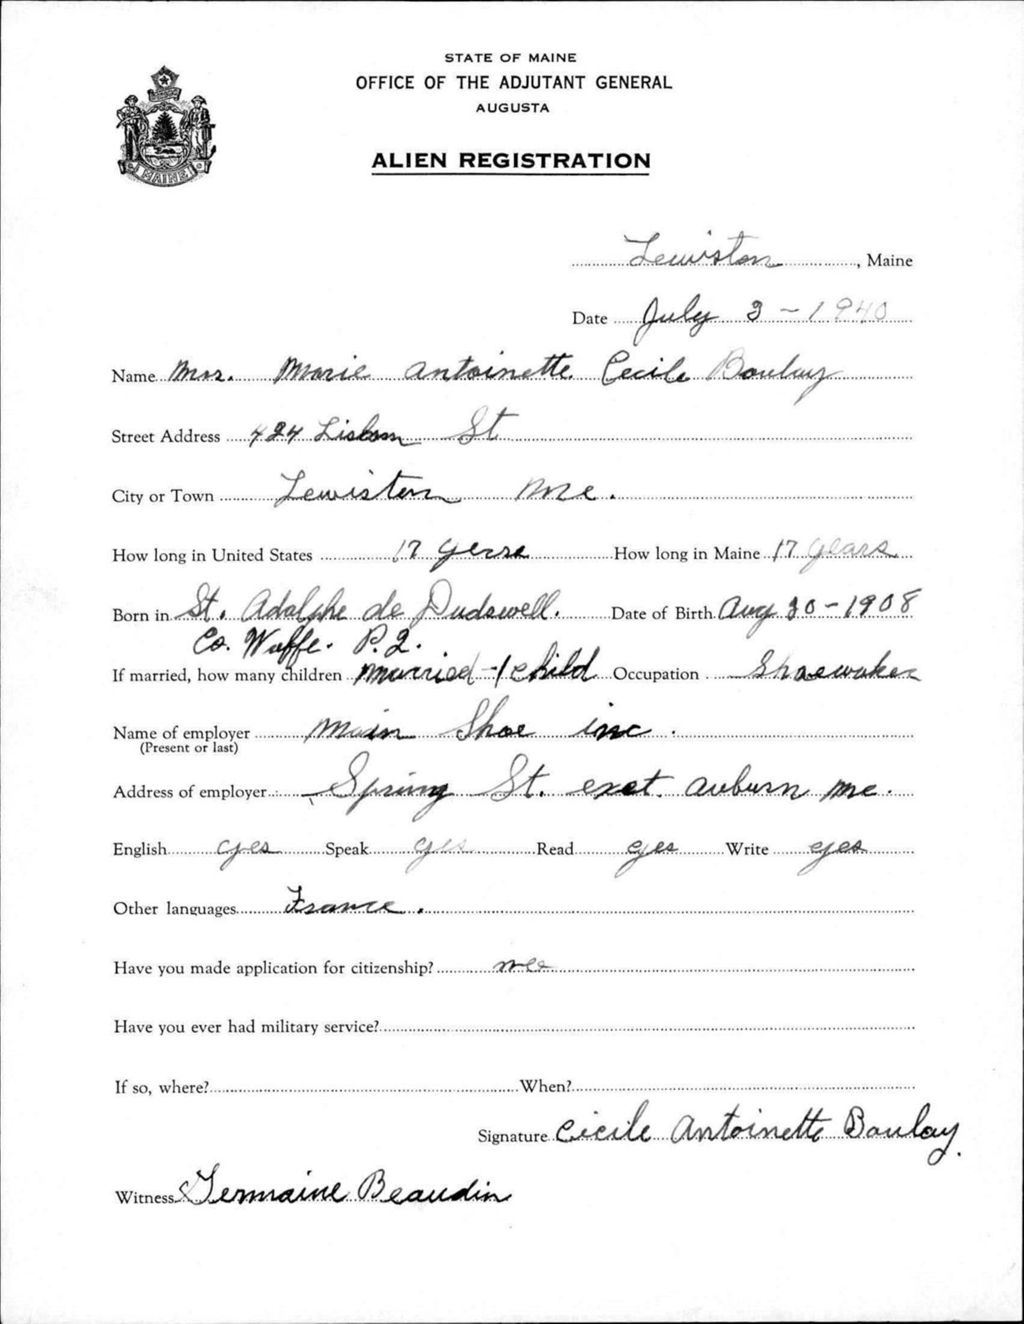 STATE OF MAINE
OFFICE OF THE ADJUTANT GENERAL
AUGUSTA
ALIEN REGISTRATION
MAINE
Lewiston, Maine
Date July 3 - 1940
Name Mrs. Marie Antoinette Cecile Boulay
Street Address 424 Lisbon St
City or Town Lewiston Me.
How long in United States 17 years How long in Maine 17 years
Born in St. Adolphe de Dudswell. Date of Birth Aug 30 - 1908
Co. Wolfe. P.Q.
If married, how many children married - 1 child Occupation Shoewoker
Name of employer Main Shoe inc.
(Present or last)
Address of employer Spring St. exet. auburn me.
English yes Speak yes Read yes Write yes
Other languages France.
Have you made application for citizenship?
Have you ever had military service?
If so, where? When?
Signature Cicile Antoinette Boulay.
Witness Germaine Beaudin